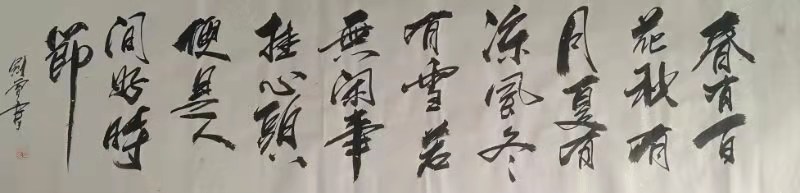 春有百
花秋有
月夏有
凉風冬
有雪若
無闲事
挂心頭
便是人
间好時
節